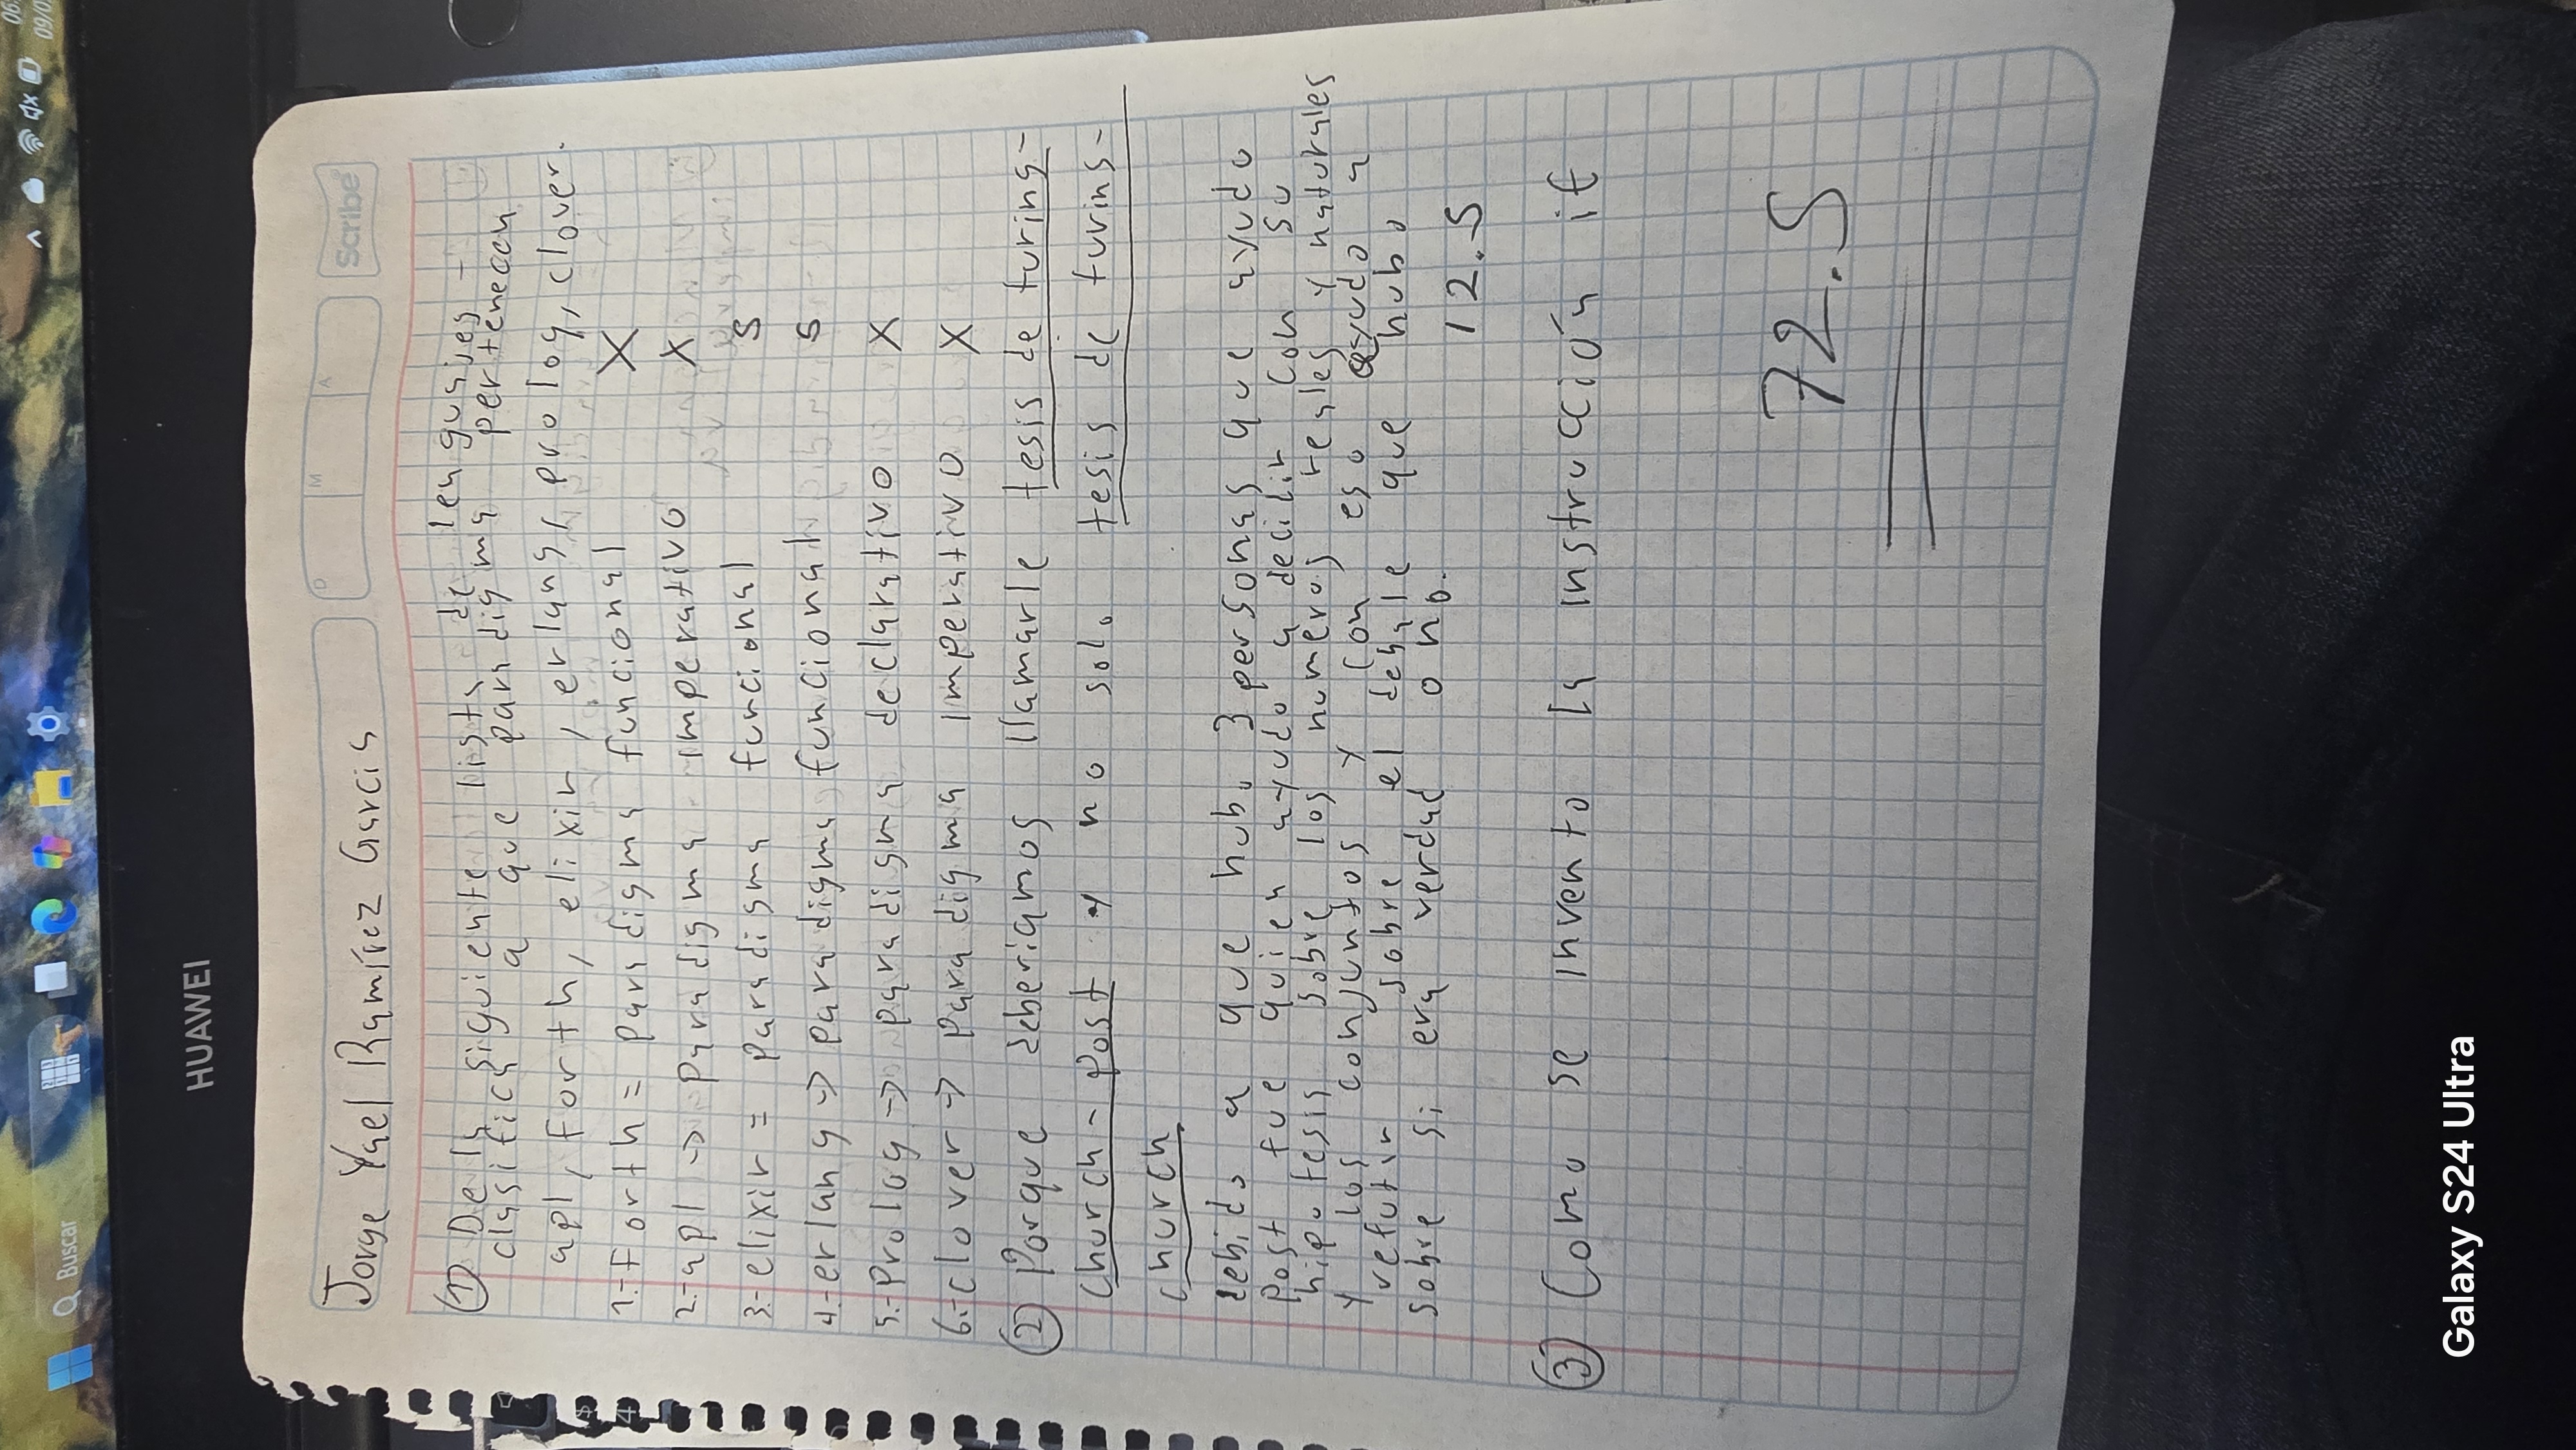 Buscar
06
09/0
HUAWEI
D M A
Scribe
Jorge Yael Ramírez Garcia
① De la siguiente lista de lenguajes -
clasifica a que paradigma pertenecen
apl, forth, elixir, erlang, prolog, clover.
1.- Forth = paradigma funcional X
2.- apl -> paradigma imperativo X
3.- elixir = paradigma funcional 5
4.- erlang -> paradigma funcional 5
5.- Prolog -> paradigma declarativo X
6.- clover -> paradigma imperativo X
② Porque deberiamos llamarle tesis de turing-
church-post y no solo tesis de turing-
church
debido a que hubo 3 personas que ayudo
post fue quien ayudo a decidir con su
hipotesis sobre los numeros reales y naturales
y los conjuntos y con eso ayudo a
refutar sobre el debate que hubo
sobre si era verdad o no.
12.5
③ Como se invento la instrucción if
72.5
Galaxy S24 Ultra